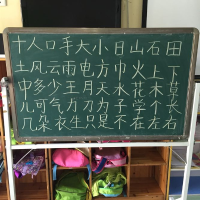 十人口手大小日山石田
土风云雨电方巾火上下
中多少王月天水花木草
儿可气力刀为子学个长
几朵衣生只是不在左右